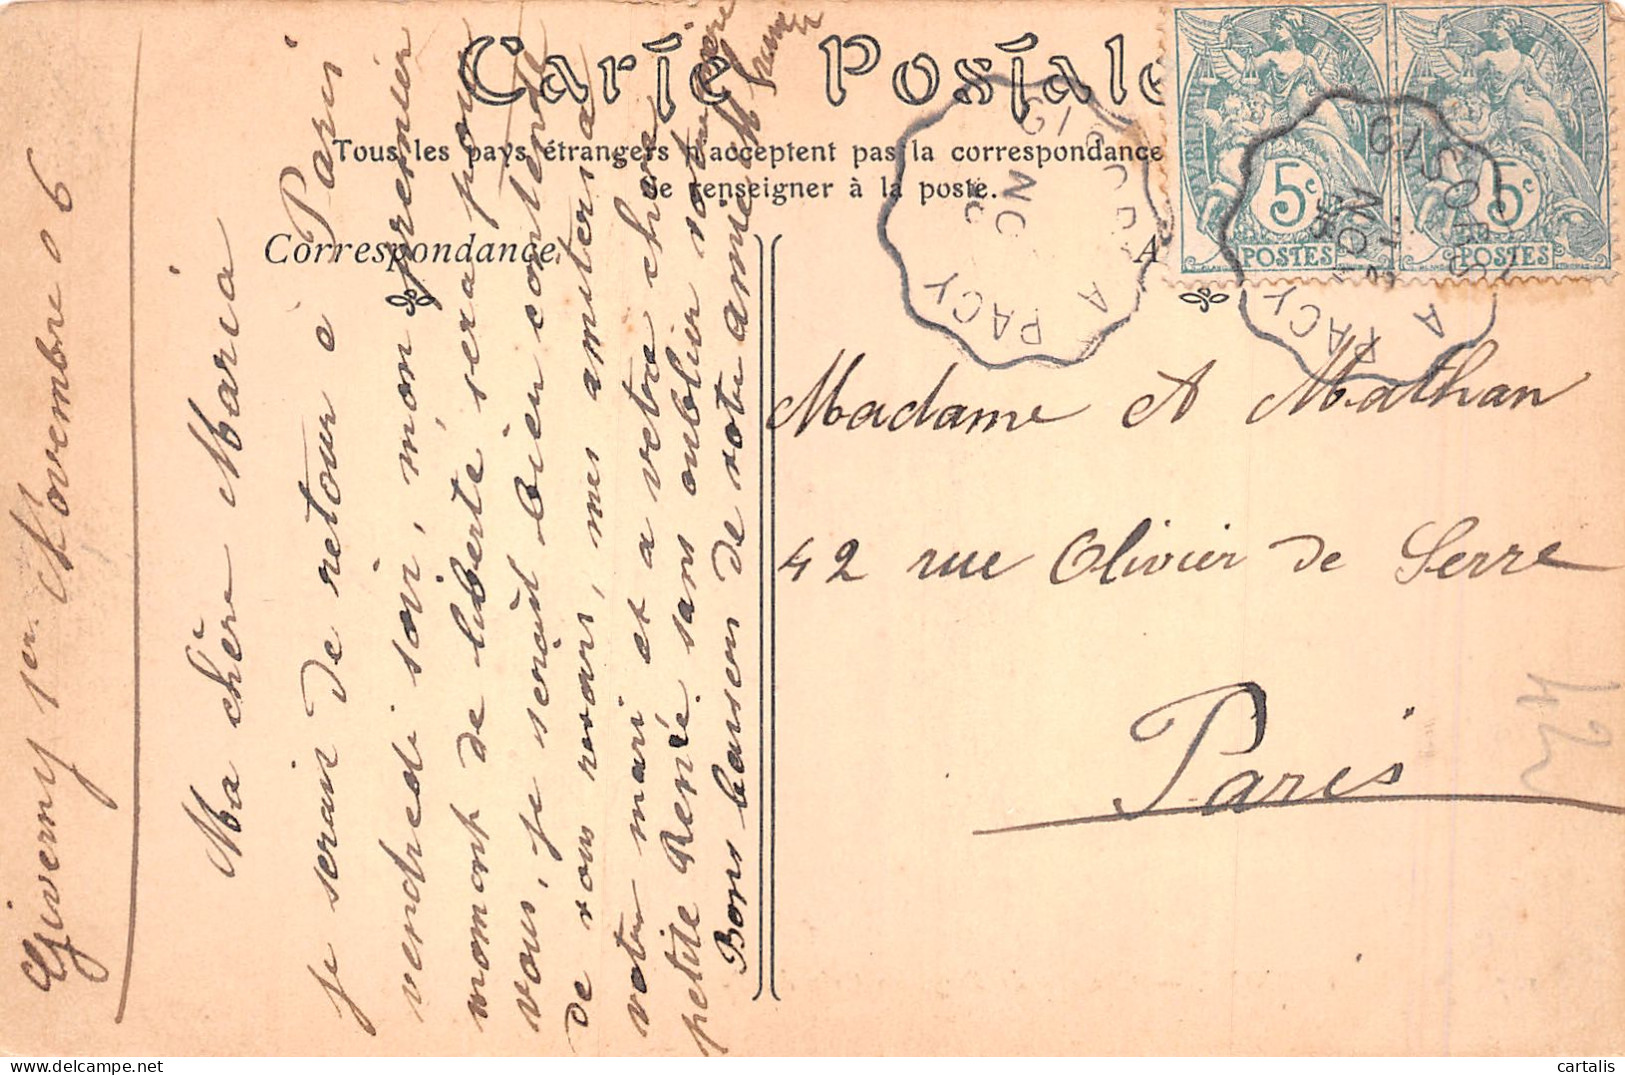 Carte Postale
Tous les pays étrangers n'acceptent pas la correspondance
Se renseigner à la poste.
Correspondance
A
RÉPUBLIQUE FRANÇAISE
5c
POSTES
RÉPUBLIQUE FRANÇAISE
5c
POSTES
A PACY
A PACY
Giverny 1er Novembre 06
Ma chère Maria
je serait de retour à Paris
vendredi soir, mon premier
moment de liberté sera pour
vous, je serait bien contente
de vous revoir, mes amitiers a
votre mari et a votre chère
petite Renée sans oublier votre mère
Bons baisers de votre amie
Madame A Mathan
42 rue Olivier de Serre
Paris
42
cartalis